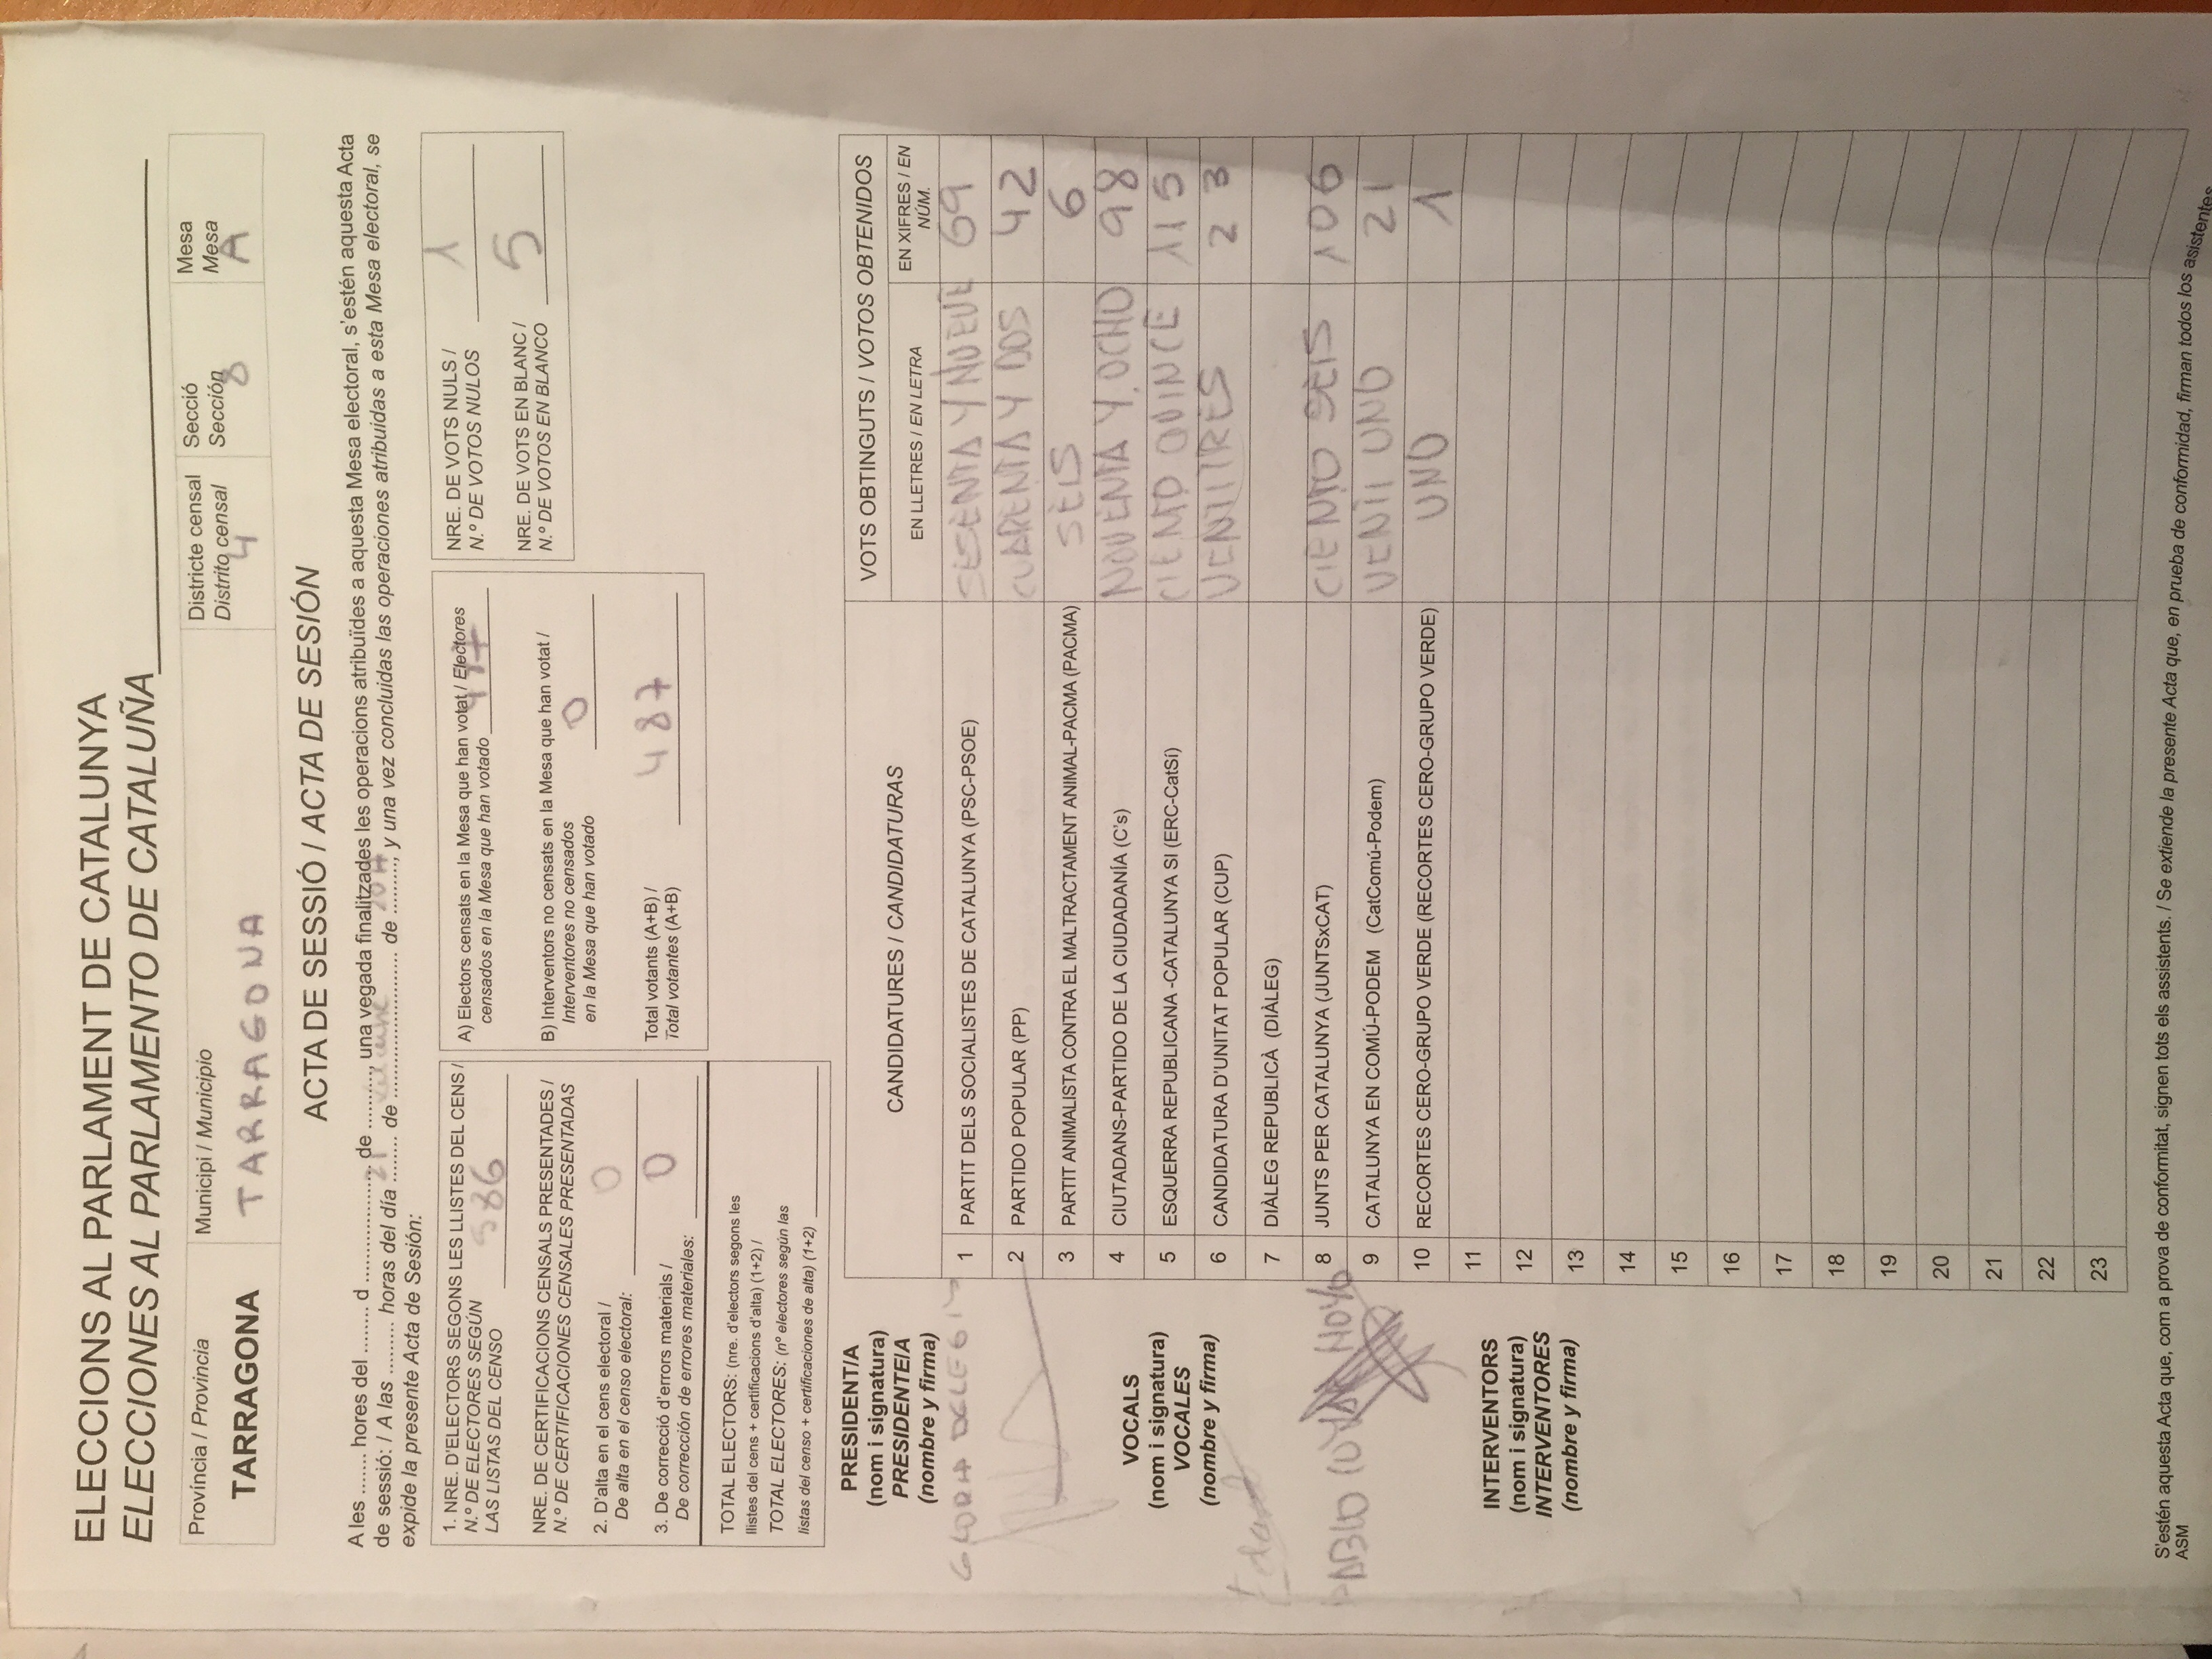 ELECCIONS AL PARLAMENT DE CATALUNYA
ELECCIONES AL PARLAMENTO DE CATALUÑA
Província / Provincia
TARRAGONA
Municipi / Municipio
TARRAGONA
Districte censal
Distrito censal
4
Secció
Sección
8
Mesa
Mesa
A
ACTA DE SESSIÓ / ACTA DE SESIÓN
A les ....... hores del ........ d ..................... de .........., una vegada finalitzades les operacions atribuïdes a aquesta Mesa electoral, s'estén aquesta Acta
de sessió: / A las ......... horas del día 21 de ......................... de 2017, y una vez concluidas las operaciones atribuidas a esta Mesa electoral, se
expide la presente Acta de Sesión:
1. NRE. D'ELECTORS SEGONS LES LLISTES DEL CENS /
N.º DE ELECTORES SEGÚN
LAS LISTAS DEL CENSO 586
NRE. DE CERTIFICACIONS CENSALS PRESENTADES /
N.º DE CERTIFICACIONES CENSALES PRESENTADAS
2. D'alta en el cens electoral /
De alta en el censo electoral: 0
3. De correcció d'errors materials /
De corrección de errores materiales: 0
TOTAL ELECTORS: (nre. d'electors segons les
llistes del cens + certificacions d'alta) (1+2) /
TOTAL ELECTORES: (nº electores según las
listas del censo + certificaciones de alta) (1+2)
A) Electors censats en la Mesa que han votat / Electores
censados en la Mesa que han votado 487
B) Interventors no censats en la Mesa que han votat /
Interventores no censados
en la Mesa que han votado 0
Total votants (A+B) /
Total votantes (A+B) 487
NRE. DE VOTS NULS /
N.º DE VOTOS NULOS 1
NRE. DE VOTS EN BLANC /
N.º DE VOTOS EN BLANCO 5
PRESIDENT/A
(nom i signatura)
PRESIDENTE/A
(nombre y firma)
GLORIA
VOCALS
(nom i signatura)
VOCALES
(nombre y firma)
PABLO
INTERVENTORS
(nom i signatura)
INTERVENTORES
(nombre y firma)
CANDIDATURES / CANDIDATURAS
VOTS OBTINGUTS / VOTOS OBTENIDOS
EN LLETRES / EN LETRA
EN XIFRES / EN
NÚM.
1 PARTIT DELS SOCIALISTES DE CATALUNYA (PSC-PSOE) SESENTA Y NUEVE 69
2 PARTIDO POPULAR (PP) CUARENTA Y DOS 42
3 PARTIT ANIMALISTA CONTRA EL MALTRACTAMENT ANIMAL-PACMA (PACMA) SEIS 6
4 CIUTADANS-PARTIDO DE LA CIUDADANÍA (C's) NOVENTA Y OCHO 98
5 ESQUERRA REPUBLICANA -CATALUNYA SI (ERC-CatSí) CIENTO QUINCE 115
6 CANDIDATURA D'UNITAT POPULAR (CUP) VENTITRES 23
7 DIÀLEG REPUBLICÀ (DIÀLEG)
8 JUNTS PER CATALUNYA (JUNTSxCAT) CIENTO SEIS 106
9 CATALUNYA EN COMÚ-PODEM (CatComú-Podem) VENTI UNO 21
10 RECORTES CERO-GRUPO VERDE (RECORTES CERO-GRUPO VERDE) UNO 1
11
12
13
14
15
16
17
18
19
20
21
22
23
S'estén aquesta Acta que, com a prova de conformitat, signen tots els assistents. / Se extiende la presente Acta que, en prueba de conformidad, firman todos los asistentes
ASM